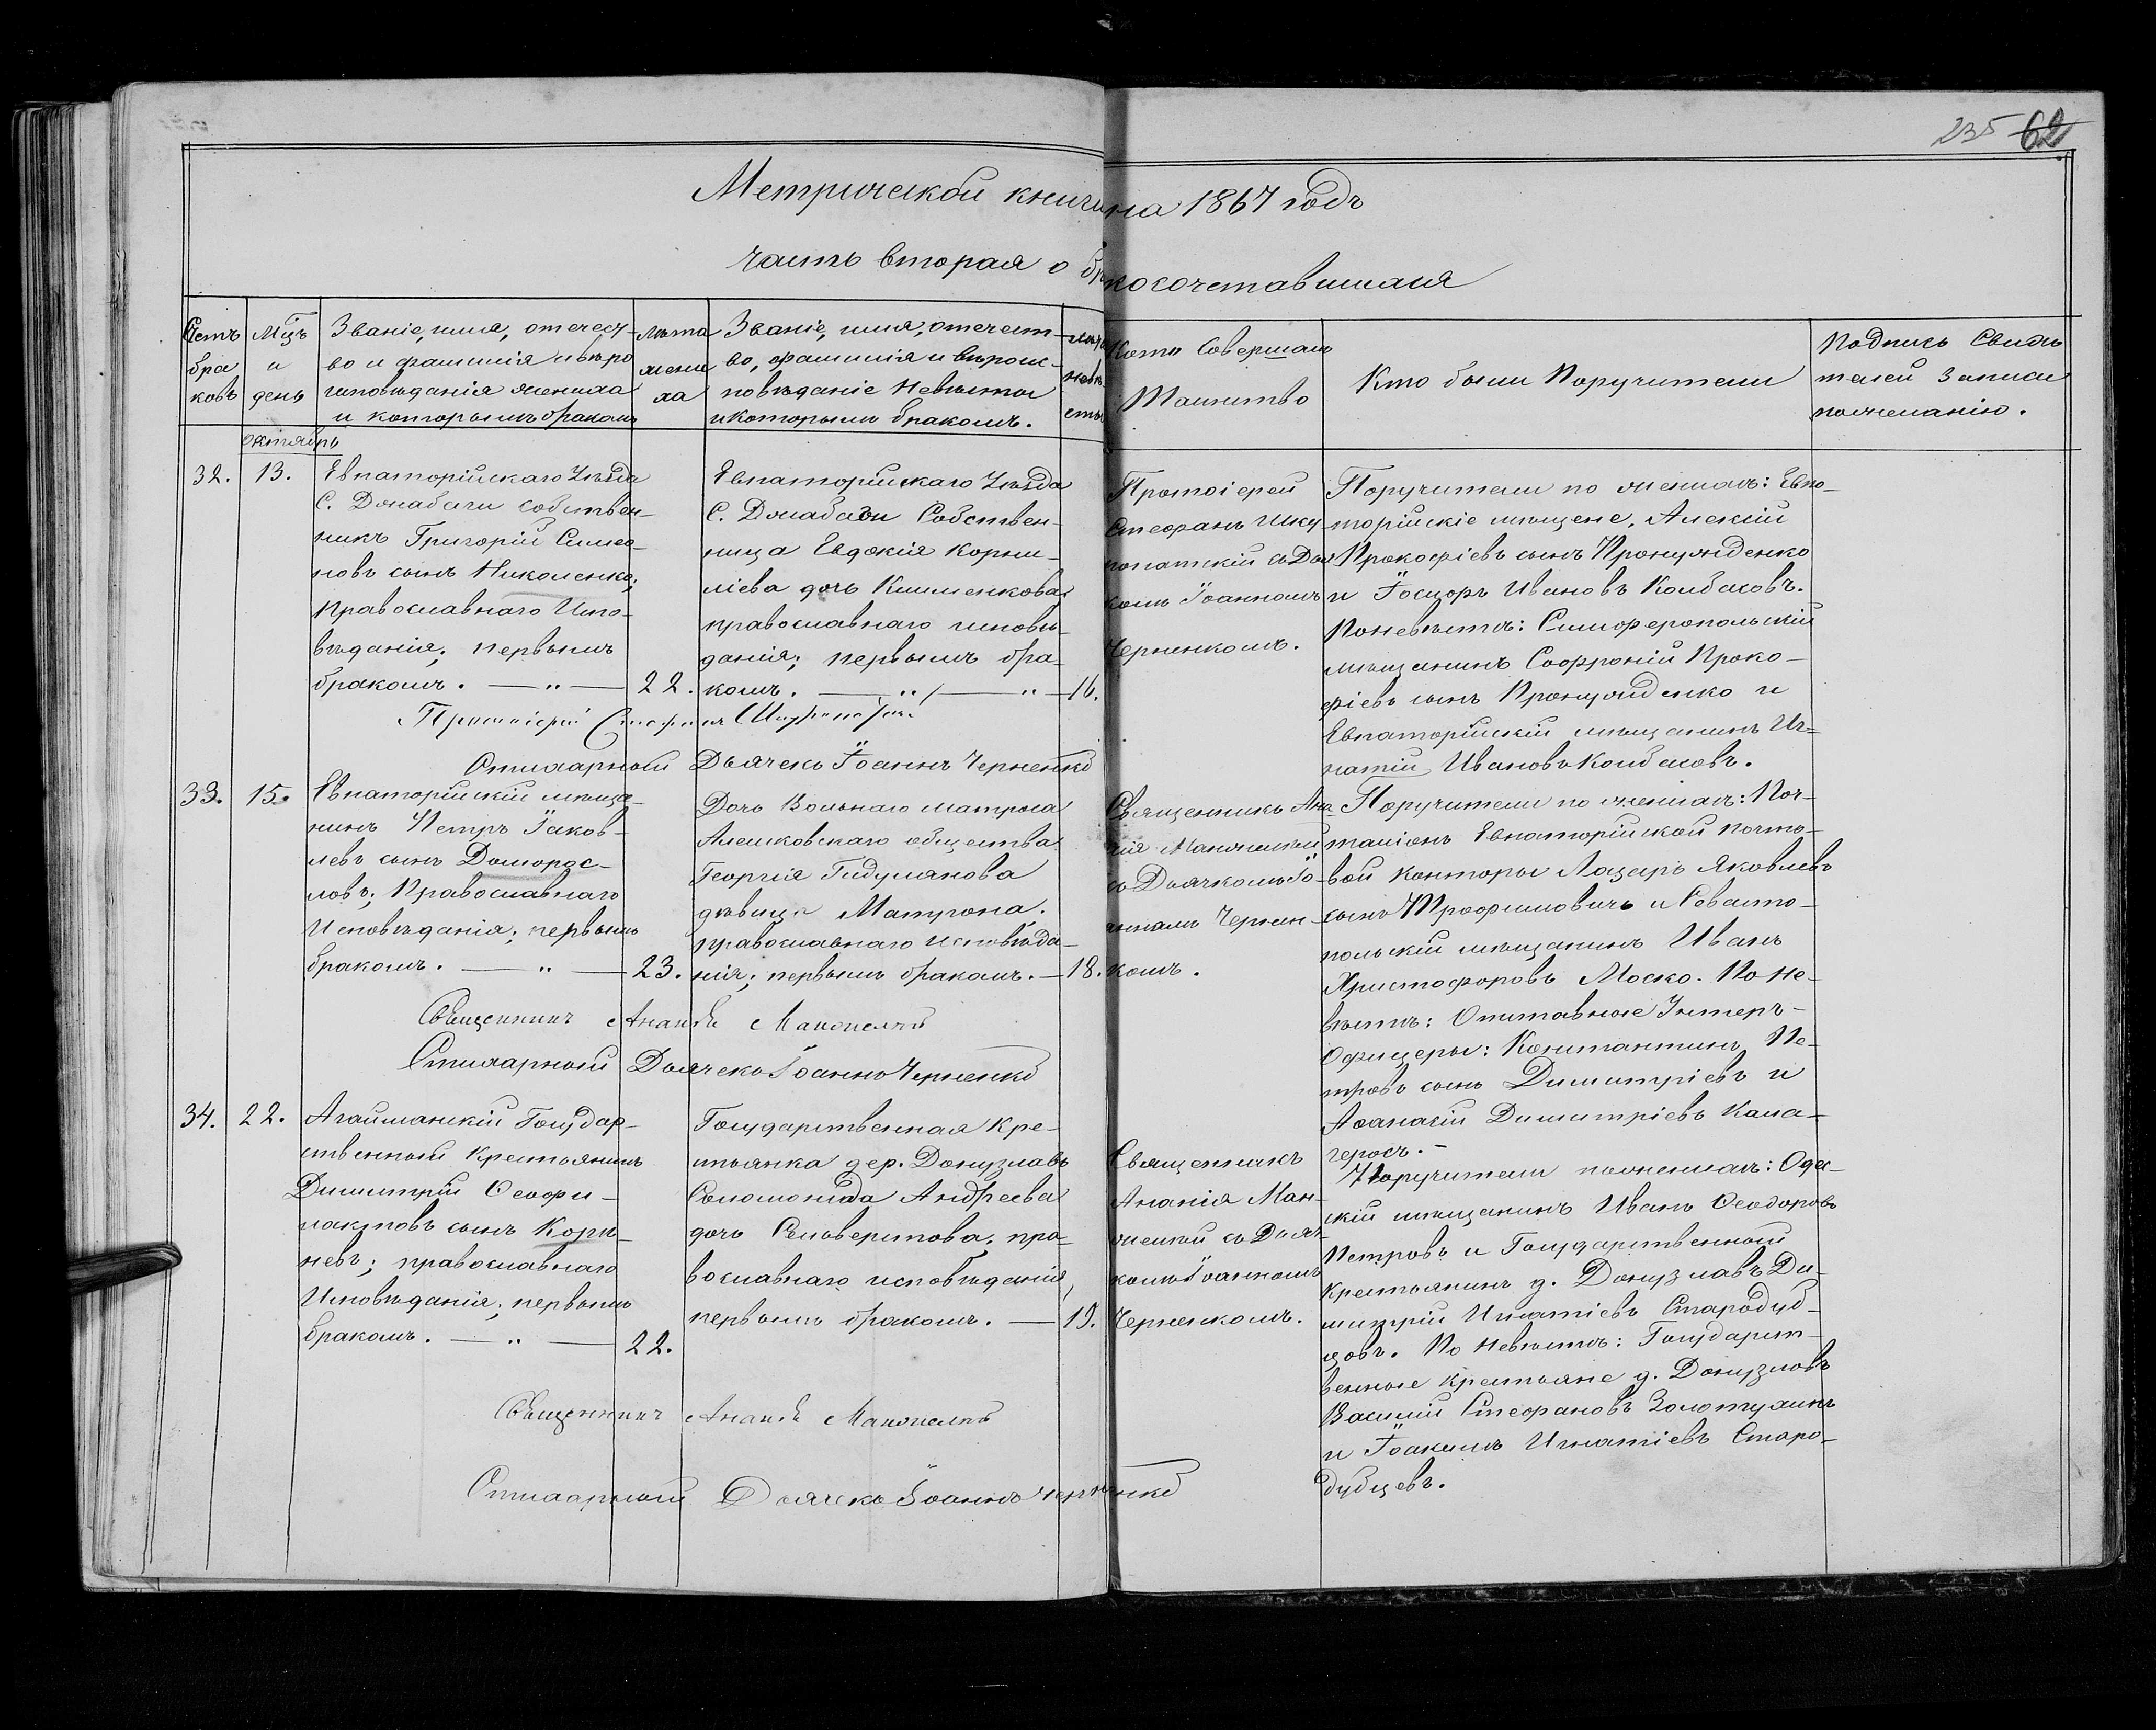 235 62
Метрической книги на 1867 годъ
часть вторая о бракосочетавшихся
Счетъ браковъ
Мцъ и день
Званіе, имя, отечест-
во и фамилія и вѣро
исповѣданія жениха
и которымъ бракомъ
лѣта
жени
ха
Званіе, имя, отечест-
во, фамилія и вѣроис-
повѣданіе невѣсты
и которымъ бракомъ.
лѣта
невѣ
сты
Кто Совершалъ
Таинство
Кто были Поручители
Подпись Свидѣ
телей записи
по желанію.
Октябрь
32. 13.
Евпаторійскаго Уѣзда
С. Донабачи собствен-
никъ Григорій Симео-
новъ сынъ Николенко;
Православнаго Испо-
вѣданія; первымъ
бракомъ. — „ — 22.
Евпаторійскаго Уѣзда
С. Донабачи Собствен-
ница Евдокія Корни-
ліева дочь Клименкова
православнаго исповѣ-
данія; первымъ бра-
комъ. — „ — „ — 16.
Протоіерей
Стефанъ Шку
попатскій съ Дья
комъ Іоанномъ
Черненкомъ.
Поручители по женихѣ: Евпа-
торійскіе мѣщане, Алексій
Прокофіевъ сынъ Пронцяденко
и Ѳеодоръ Ивановъ Колбасовъ.
По невѣстѣ: Симферопольскій
мѣщанинъ Софроній Проко-
фіевъ сынъ Пронцяденко и
Евпаторійскій мѣщанинъ Иг-
натій Ивановъ Колбасовъ.
Протоіерей Стефанъ
Стихарный Дьячекъ Іоаннъ Черненко
33. 15.
Евпаторійскій мѣща-
нинъ Петръ Іаков-
левъ сынъ Доморос-
ловъ; Православнаго
Исповѣданія; первымъ
бракомъ. — „ — 23.
Дочь Вольнаго матроса
Алешковскаго общества
Георгія Гидулянова
дѣвица Матрона.
православнаго исповѣда-
нія; первымъ бракомъ. — 18.
Священникъ Ана
нія Манжелей
съ Дьячкомъ Іо-
анномъ Чернен-
комъ.
Поручители по женихѣ: Поч-
таліонъ Евпаторійской почто-
вой конторы Лазарь Яковлевъ
сынъ Трофимовичъ и Севасто-
польскій мѣщанинъ Иванъ
Христофоровъ Моско. По не-
вѣстѣ: Отставные Унтеръ-
Офицеры: Константинъ Пе-
тровъ сынъ Димитріевъ и
Аѳанасій Димитріевъ Кала-
геросъ. —
Священникъ Ананія
Стихарный Дьячекъ Іоаннъ Черненко
34. 22.
Агайманскій Государ-
ственный Крестьянинъ
Димитрій Ѳеофи-
лактовъ сынъ Корн-
невъ; православнаго
Исповѣданія; первымъ
бракомъ. — „ — 22.
Государственная Кре-
стьянка дер. Донузлавъ
Соломонида Андреева
дочь Сельверстова; пра-
вославнаго исповѣданія,
первымъ бракомъ. — 19.
Священникъ
Ананія Ман-
желей съ Дьяч-
комъ Іоанномъ
Черненкомъ.
Поручители по женихѣ: Одес-
скій мѣщанинъ Иванъ Ѳеодоровъ
Петровъ и Государственный
крестьянинъ д. Донузлавъ Ди-
митрій Игнатіевъ Стародуб-
цовъ. По невѣстѣ: Государст-
венные крестьяне д. Донузлавъ
Василій Стефановъ Золотухинъ
и Іоакимъ Игнатіевъ Старо-
дубцевъ.
Священникъ Ананія
Стихарный Дьячекъ Іоаннъ Черненко